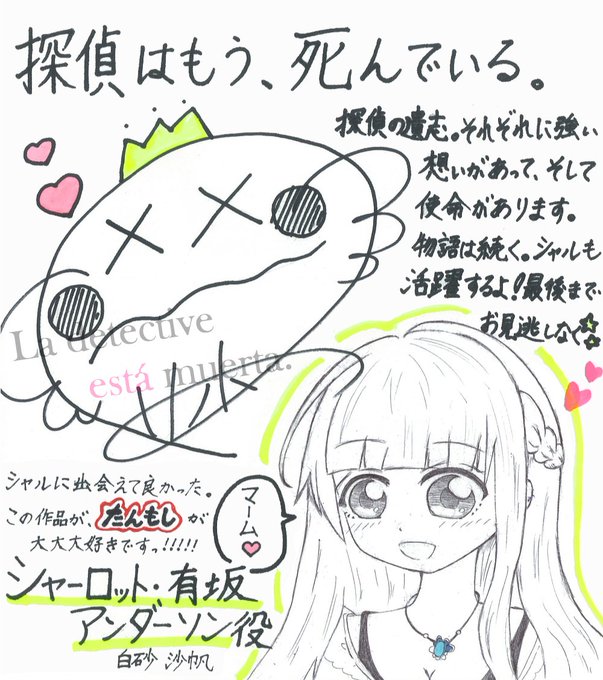 探偵はもう、死んでいる。
探偵の遺志。それぞれに強い
想いがあって、そして
使命があります。
物語は続く。シャルも
活躍するよ！最後まで
お見逃しなく
La detective
está muerta.
シャルに出会えて良かった。
この作品が、たんもしが
大大大好きですっ!!!!!
マーム
シャーロット・有坂
アンダーソン役
白砂 沙帆